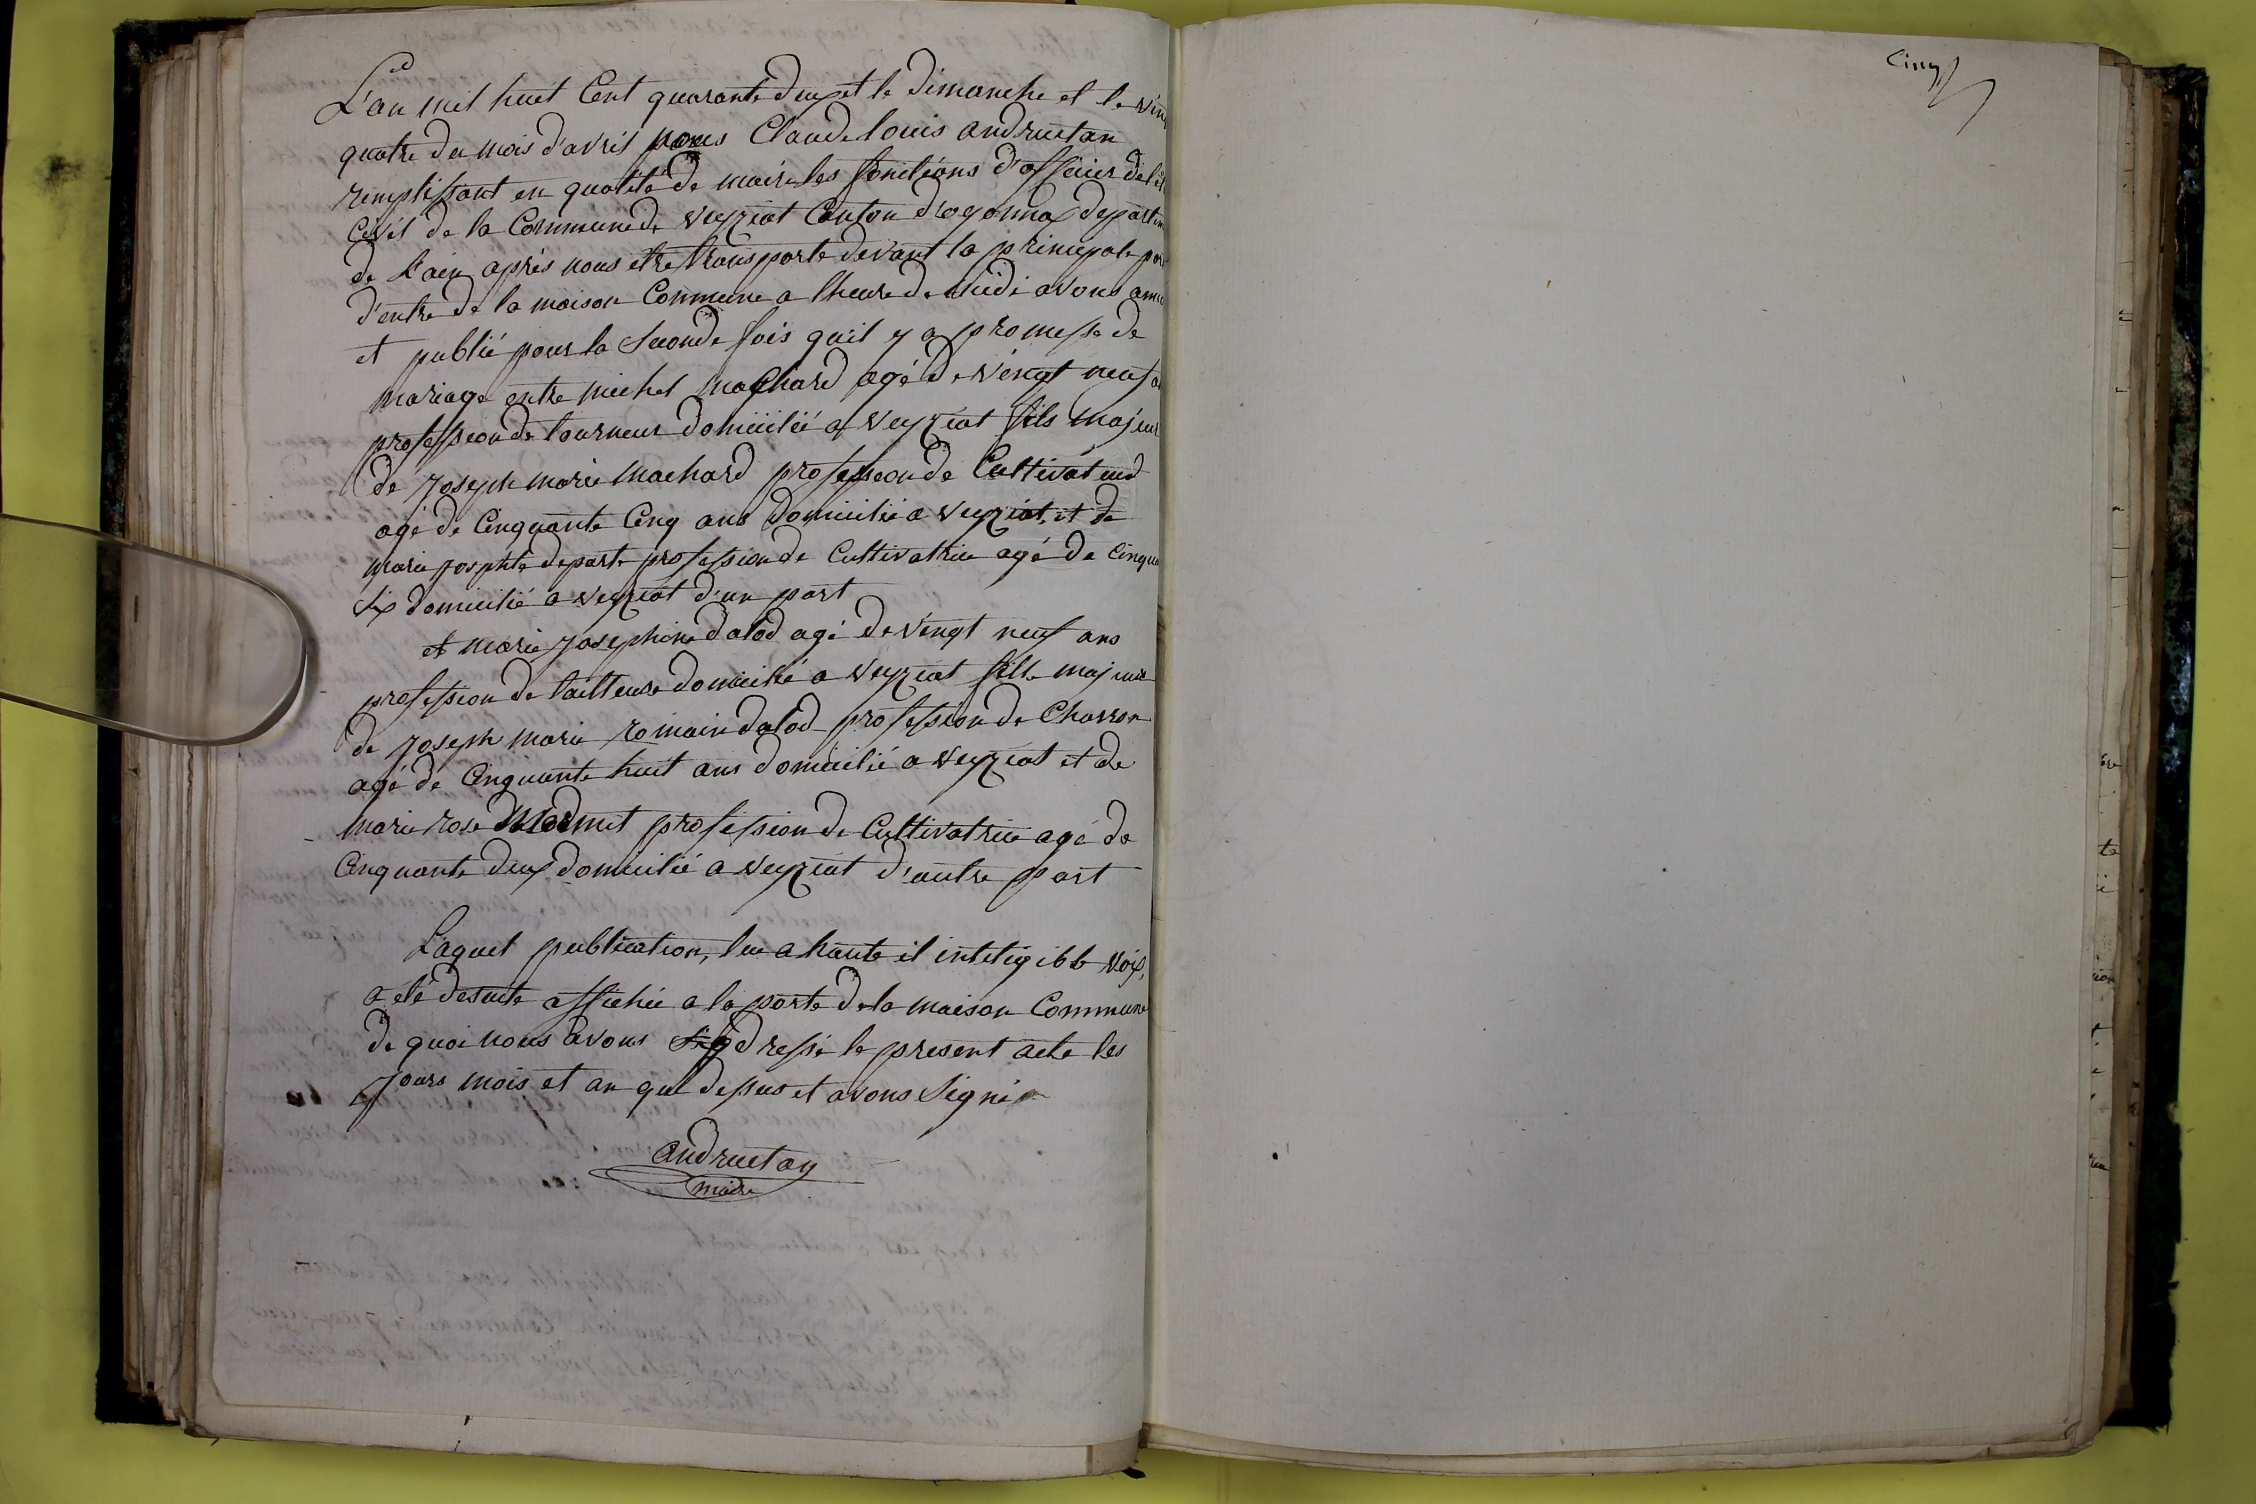 L'an mil huit Cent quarante deux et le dimanche et le vin
quatre du mois d'avril nous Claude louis andruetan
remplissant en qualité de maire les fonctions d'officier de l'ét
Civil de la Commune de veyziat Canton d'oyonnax departem
de L'ain après nous etre transporte devant la principale por
d'entre de la maison Commune a l'heure de midi avons ann
et publié pour la seconde fois qu'il y a promesse de
mariage entre michel machard agé de vingt neuf a
profession de tourneur domicilié a veyziat fils majeur
de joseph marie machard profession de Cultivateur
agé de Cinquante Cinq ans domicilié a veyziat, et de
marie josephte departe profession de Cultivatrice agé de Cinqua
Six domicilié a veyziat d'un part
et marie josephine dalod agé de vingt neuf ans
profession de tailleuse domicilié a veyziat fille majeure
de joseph marie romain dalod profession de Charron
agé de Cinquante huit ans domicilié a veyziat et de
marie rose Mermet profession de Cultivatrice agé de
Cinquante deux domicilié a veyziat d'autre part
Laquel publication, lu a haute il inteligible voix,
a été desuite affichée a la porte de la maison Commune
de quoi nous avons dressé le present acte les
jours mois et an que dessus et avons signé
andruetan
maire
Cinq